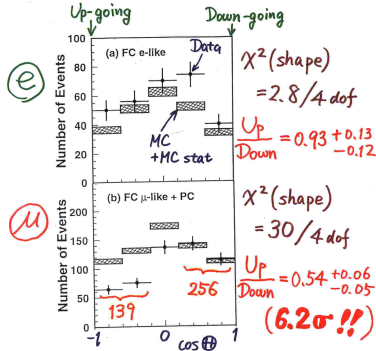 Up-going
Down-going
(a) FC e-like
Data
MC
+MC stat
Number of Events
100
80
60
40
20
0
e
χ² (shape)
= 2.8/4 dof
Up/Down = 0.93 +0.13 -0.12
(b) FC μ-like + PC
Number of Events
200
150
100
50
0
139
256
-1
0
1
cos Θ
μ
χ² (shape)
= 30/4 dof
Up/Down = 0.54 +0.06 -0.05
(6.2σ !!)